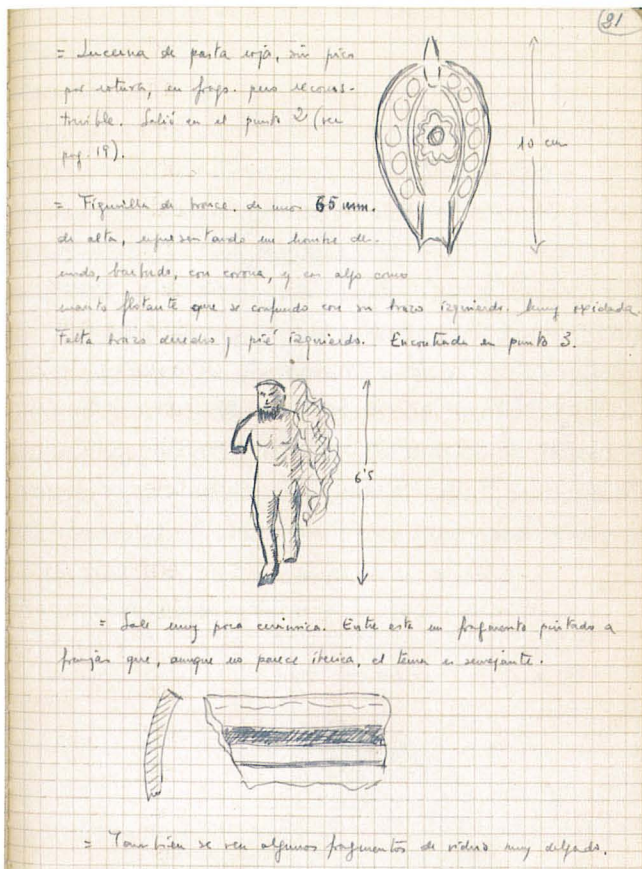 21
= Lucerna de pasta roja, sin pico
por rotura, en frags. pero recons-
truible. Salió en el punto 2 (ver
pag. 19).
10 cm
= Figurilla de bronce. de unos 65 mm.
de alta, representando un hombre des-
nudo, barbudo, con corona, y con algo como
manto flotante que se confunde con su brazo izquierdo. Muy oxidada.
Falta brazo derecho y pié izquierdo. Encontrada en punto 3.
6'5
= Sale muy poca cerámica. Entre esta un fragmento pintado a
franjas que, aunque no parece ibérica, el tema es semejante.
= También se ven algunos fragmentos de vidrio muy delgado.